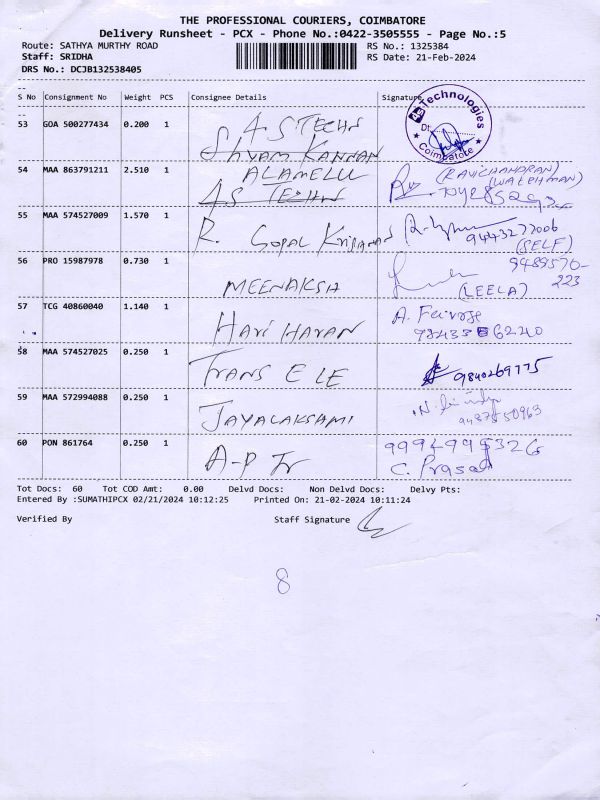 THE PROFESSIONAL COURIERS, COIMBATORE
Delivery Runsheet - PCX - Phone No.:0422-3505555 - Page No.:5
Route: SATHYA MURTHY ROAD RS No.: 1325384
Staff: SRIDHA RS Date: 21-Feb-2024
DRS No.: DCJB132538405
S No Consignment No Weight PCS Consignee Details Signature
Technologies
Dt:
Coimbatore
53 GOA 500277434 0.200 1 4S TECHN
SHYAM KANNAN
54 MAA 863791211 2.510 1 ALAMELU (RAVICHANDRAN)
(WATCHMAN)
4S TECHN
55 MAA 574527009 1.570 1 R. GOPAL KRISHNAN 9443277006
(SELF)
56 PRO 15987978 0.730 1 MEENAKSH 9489570-
223
(LEELA)
57 TCG 40860040 1.140 1 HARI HARAN A.
58 MAA 574527025 0.250 1 TRANS E LE 9840269775
59 MAA 572994088 0.250 1 JAYALAKSAMI
60 PON 861764 0.250 1 A-P Tr
C. Prasad
Tot Docs: 60 Tot COD Amt: 0.00 Delvd Docs: Non Delvd Docs: Delvy Pts:
Entered By :SUMATHIPCX 02/21/2024 10:12:25 Printed On: 21-02-2024 10:11:24
Verified By Staff Signature
8